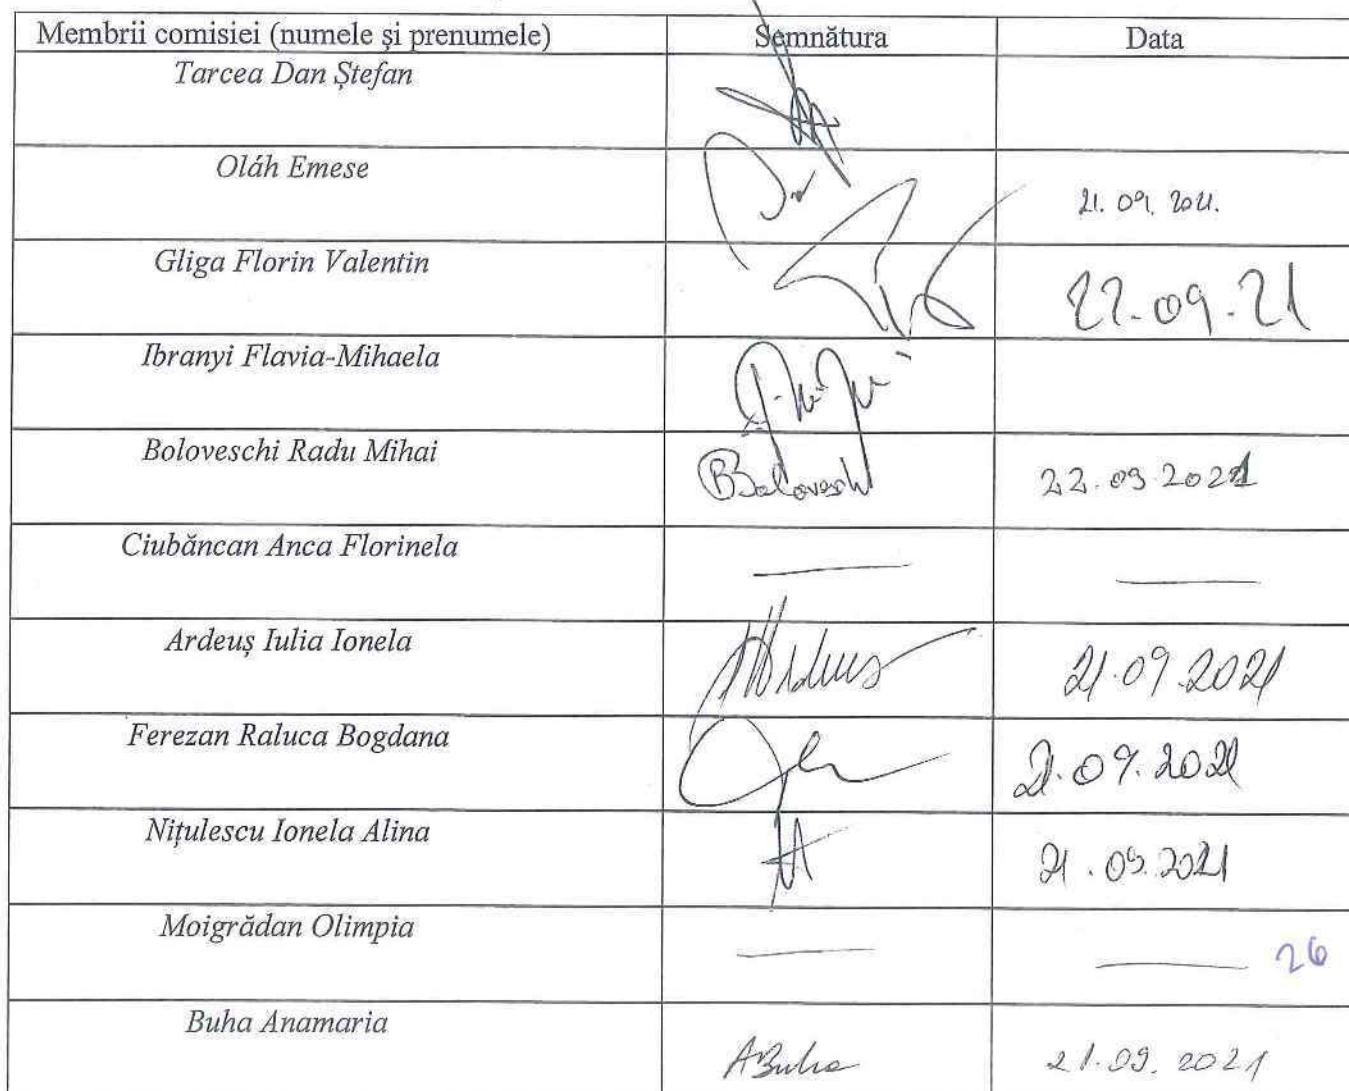 Membrii comisiei (numele și prenumele) Semnătura Data
Tarcea Dan Ștefan
Oláh Emese 21. 09. 2021.
Gliga Florin Valentin 22.09.21
Ibranyi Flavia-Mihaela
Boloveschi Radu Mihai Boloveschi 22.09.2021
Ciubăncan Anca Florinela — —
Ardeuș Iulia Ionela 21.09.2021
Ferezan Raluca Bogdana 21.09.2021
Nițulescu Ionela Alina 21.09.2021
Moigrădan Olimpia — — 26
Buha Anamaria ABuha 21.09.2021